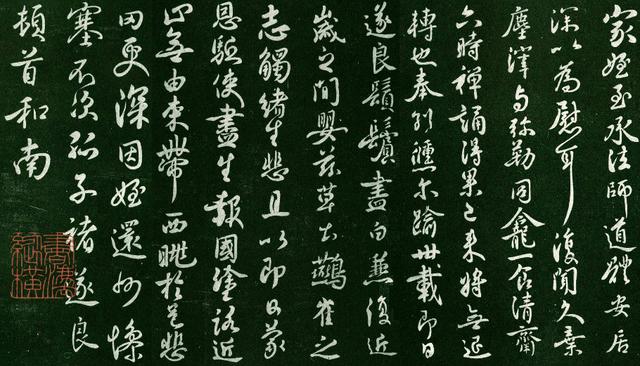 家侄至承法師道體安居
深以為慰耳復聞久棄
塵滓与弥勒同龕一食清齋
六時禪誦得果已来將無退
轉也奉別倏尔踰卅載即日
遂良鬚鬢盡白兼復近
歲之間嬰茲草土燕雀之
志觸緒生悲且以即日蒙
恩驅使盡生報國塗路近
止無由束帶西眺於悒悲
罔更深因侄還州慘
塞不次孤子褚遂良
頓首和南
書海縱橫